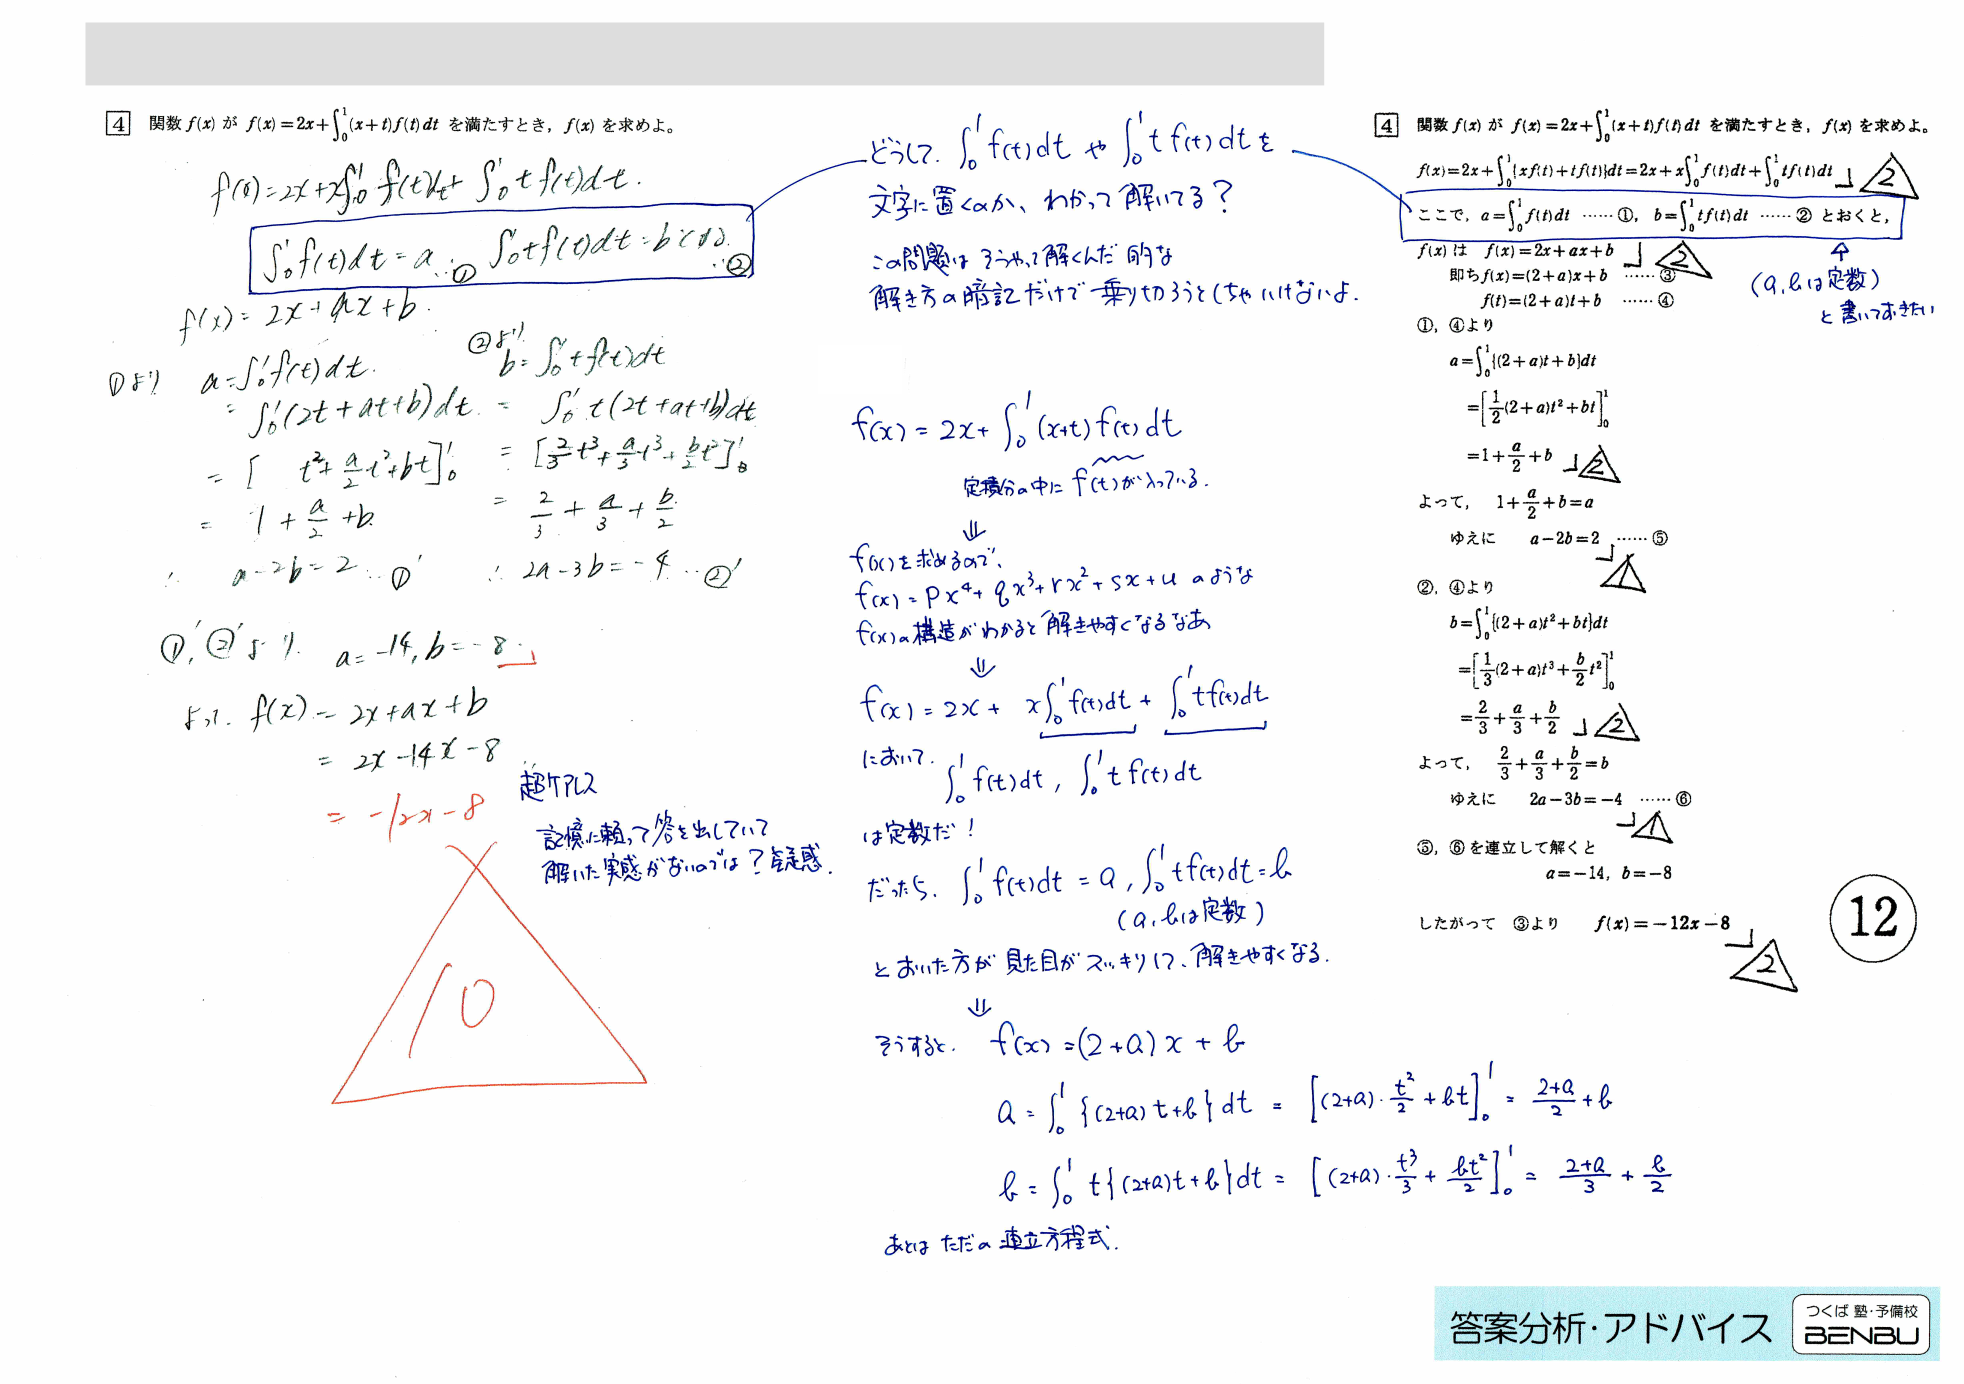 4 関数 f(x) が f(x)=2x+∫₀¹(x+t)f(t)dt を満たすとき，f(x) を求めよ。
f(x)=2x+x∫₀¹f(t)dt+∫₀¹tf(t)dt.
∫₀¹f(t)dt=a…① ∫₀¹tf(t)dt=b…②
f(x)=2x+ax+b.
①より a=∫₀¹f(t)dt.
=∫₀¹(2t+at+b)dt.
=[t²+a/2t²+bt]₀¹
=1+a/2+b.
∴ a-2b=2…①'
②より
b=∫₀¹tf(t)dt
=∫₀¹t(2t+at+b)dt
=[2/3t³+a/3t³+b/2t²]₀¹
=2/3+a/3+b/2
∴ 2a-3b=-4…②'
①',②'より a=-14, b=-8.
よって. f(x)=2x+ax+b
=2x-14x-8
=-12x-8
超ケアレス
記憶に頼って答を出していて
解いた実感がないのでは？疑惑.
10
どうして、∫₀¹f(t)dt や ∫₀¹tf(t)dt を
文字に置くのか、わかって解いてる？
この問題は そうやって解くんだ 的な
解き方の暗記だけで乗り切ろうとしちゃいけないよ.
f(x)=2x+∫₀¹(x+t)f(t)dt
定積分の中に f(t)が入っている.
⇓
f(x)を求めるので、
f(x)=px⁴+qx³+rx²+sx+u のような
f(x)の構造がわかると解きやすくなるなあ
⇓
f(x)=2x+x∫₀¹f(t)dt+∫₀¹tf(t)dt
において.
∫₀¹f(t)dt, ∫₀¹tf(t)dt
は定数だ！
だったら、∫₀¹f(t)dt=a, ∫₀¹tf(t)dt=b
(a,bは定数)
とおいた方が見た目がスッキリして、解きやすくなる.
⇓
そうすると. f(x)=(2+a)x+b
a=∫₀¹{(2+a)t+b}dt=[(2+a)·t²/2+bt]₀¹=(2+a)/2+b
b=∫₀¹t{(2+a)t+b}dt=[(2+a)·t³/3+bt²/2]₀¹=(2+a)/3+b/2
あとは ただの 連立方程式.
4 関数 f(x) が f(x)=2x+∫₀¹(x+t)f(t)dt を満たすとき，f(x) を求めよ。
f(x)=2x+∫₀¹{xf(t)+tf(t)}dt=2x+x∫₀¹f(t)dt+∫₀¹tf(t)dt 2
ここで，a=∫₀¹f(t)dt ……①，b=∫₀¹tf(t)dt ……② とおくと，
f(x) は f(x)=2x+ax+b 2
(a,bは定数)
と書いておきたい
即ち f(x)=(2+a)x+b ……③
f(t)=(2+a)t+b ……④
①，④より
a=∫₀¹{(2+a)t+b}dt
=[1/2(2+a)t²+bt]₀¹
=1+a/2+b 2
よって，1+a/2+b=a
ゆえに a-2b=2 ……⑤
1
②，④より
b=∫₀¹{(2+a)t²+bt}dt
=[1/3(2+a)t³+b/2t²]₀¹
=2/3+a/3+b/2 2
よって，2/3+a/3+b/2=b
ゆえに 2a-3b=-4 ……⑥
1
⑤，⑥を連立して解くと
a=-14，b=-8
したがって ③より f(x)=-12x-8
2
12
答案分析・アドバイス
つくば 塾・予備校
BENBU